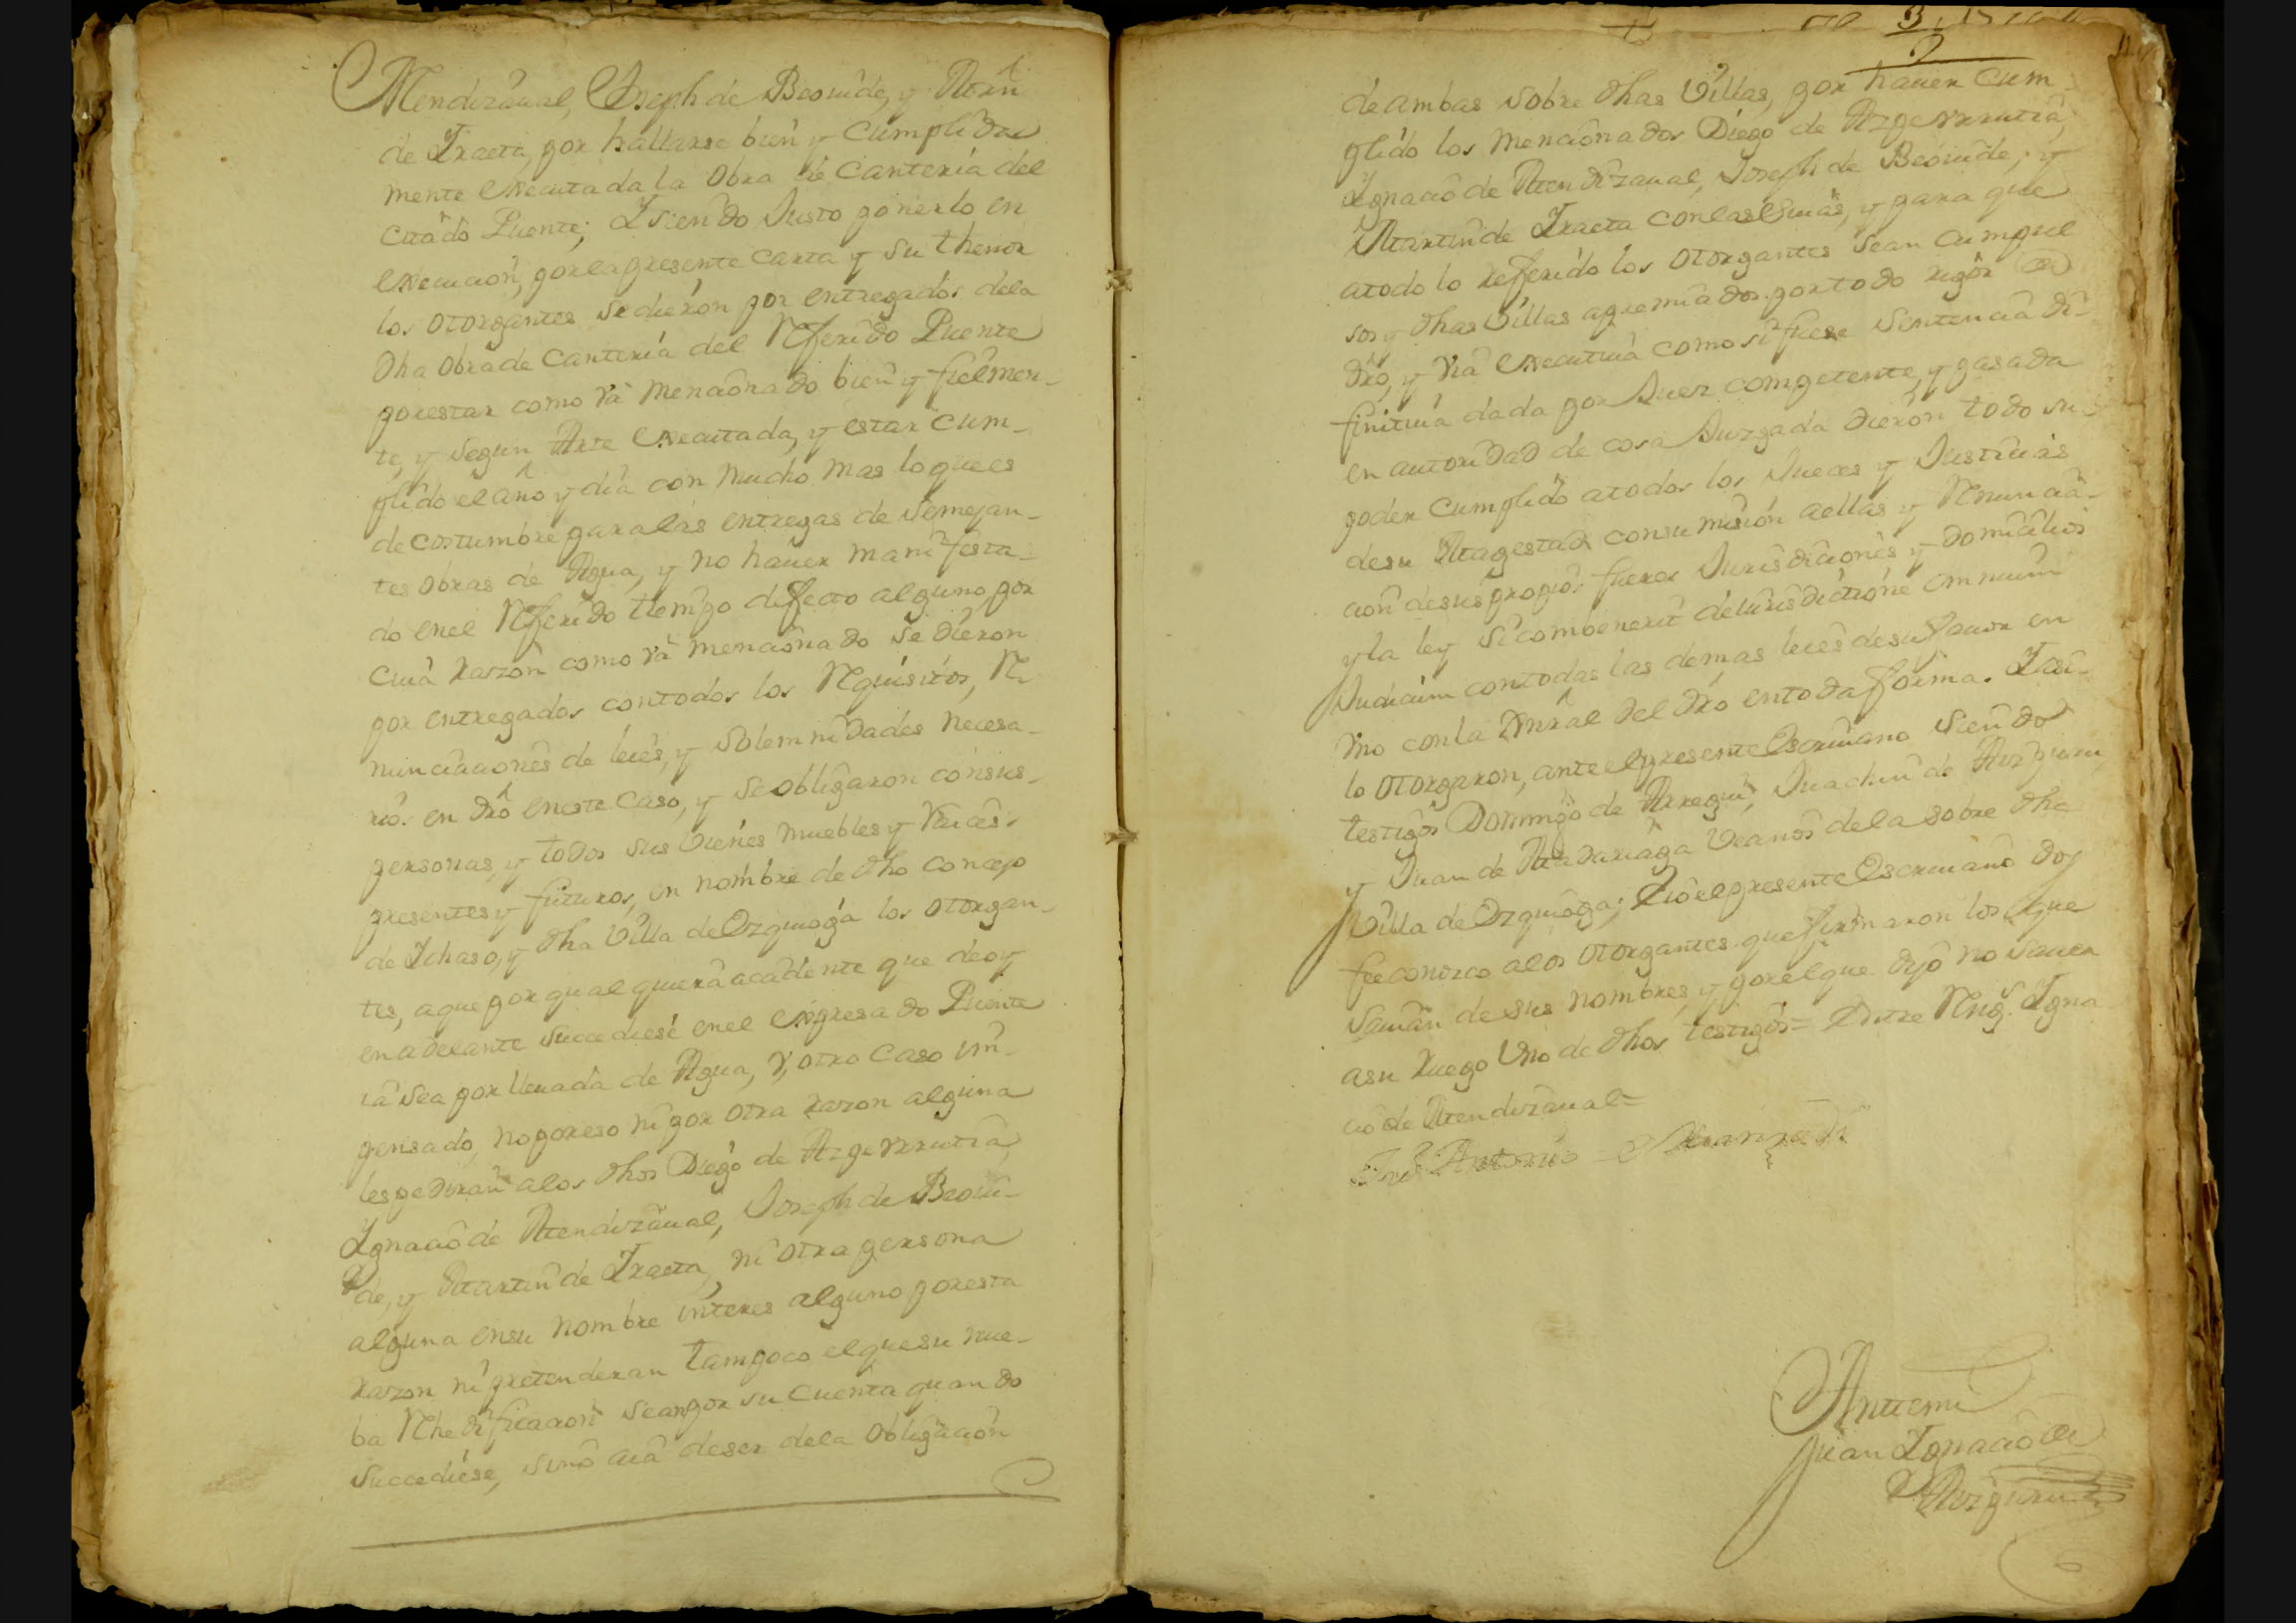 Mendizaual, Joseph de Beouide, y Martin
de Iraeta, por hallarse bien y Cumplida
mente executada la Obra de Canteria del
Citado Puente; I siendo Justo ponerlo en
execucion, por la presente Carta y su thenor
los otorgantes se dieron por entregados dela
dha obra de Canteria del Referido Puente
por estar como va mencionado bien y fielmen-
te, y segun Arte executada, y estar Cum-
plido el año y dia con mucho mas lo que es
de costumbre para las entregas de semejan-
tes obras de Agua, y no hauer manifesta-
do en el Referido tiempo defecto alguno por
Cuia razon como va mencionado se dieron
por entregados con todos los Requisitos, Re
nunciaciones de leies, y solemnidades necesa-
rios en dro en este Caso, y se obligaron con sus
personas, y todos sus vienes muebles y Raices
presentes y futuros, en nombre de dho concejo
de Ichaso, y dha Villa de Ezquioga los otorgan-
tes, a que por qualquiera acidente que de oy
en adelante succediese en el expresado Puente
ia sea por lleuada de Agua, v, otro Caso im-
pensado, no por eso ni por otra razon alguna
les pediran a los dhos Diego de Azpeurrutia,
Ignacio de Mendizaual, Joseph de Beoui-
de, y Martin de Iraeta, ni otra persona
alguna en su nombre interes alguno por esta
razon ni pretenderan tampoco el que su nue-
ba Rhedificacion sean por su Cuenta quando
Succediese, sino aia de ser dela obligacion
de ambas sobre dhas Villas, por hauer Cum-
plido los mencionados Diego de Azpeurrutia,
Ignacio de Mendizaual, Joseph de Beouide, y
Martin de Iraeta con las suias, y para que
a todo lo refferido los otorgantes sean Cumpul
sos y dhas Villas apremiados por todo rigor de
dro, y via executiua como si fuese sentencia di-
finitiua dada por Juez competente, y pasada
en autoridad de cosa Juzgada dieron todo su
poder Cumplido a todos los Jueces y Justicias
de su Magestad con sumision a ellas y Renuncia-
cion de sus propios fueros Jurisdiciones y domicilios
y la ley si combenerit de Iurisdictione omnium
Judicum con todas las demas leies de su fauor en
vno con la Gnral del dro en toda forma. I asi
lo otorgaron, ante el presente Escriuano siendo
testigos Domingo de Arregui, Juachin de Aizpuru,
y Juan de Madariaga Vecinos de la sobre dha
Villa de Ezquioga; I io el presente Escriuano doy
fee conozco a los otorgantes que firmaron los que
sauian de sus nombres, y por el que dijo no sauer
a su ruego Uno de dhos testigos= Entre Reng.s Igna
cio de Mendizaual=
Antemi
Juan Ignacio de
Aizpuru